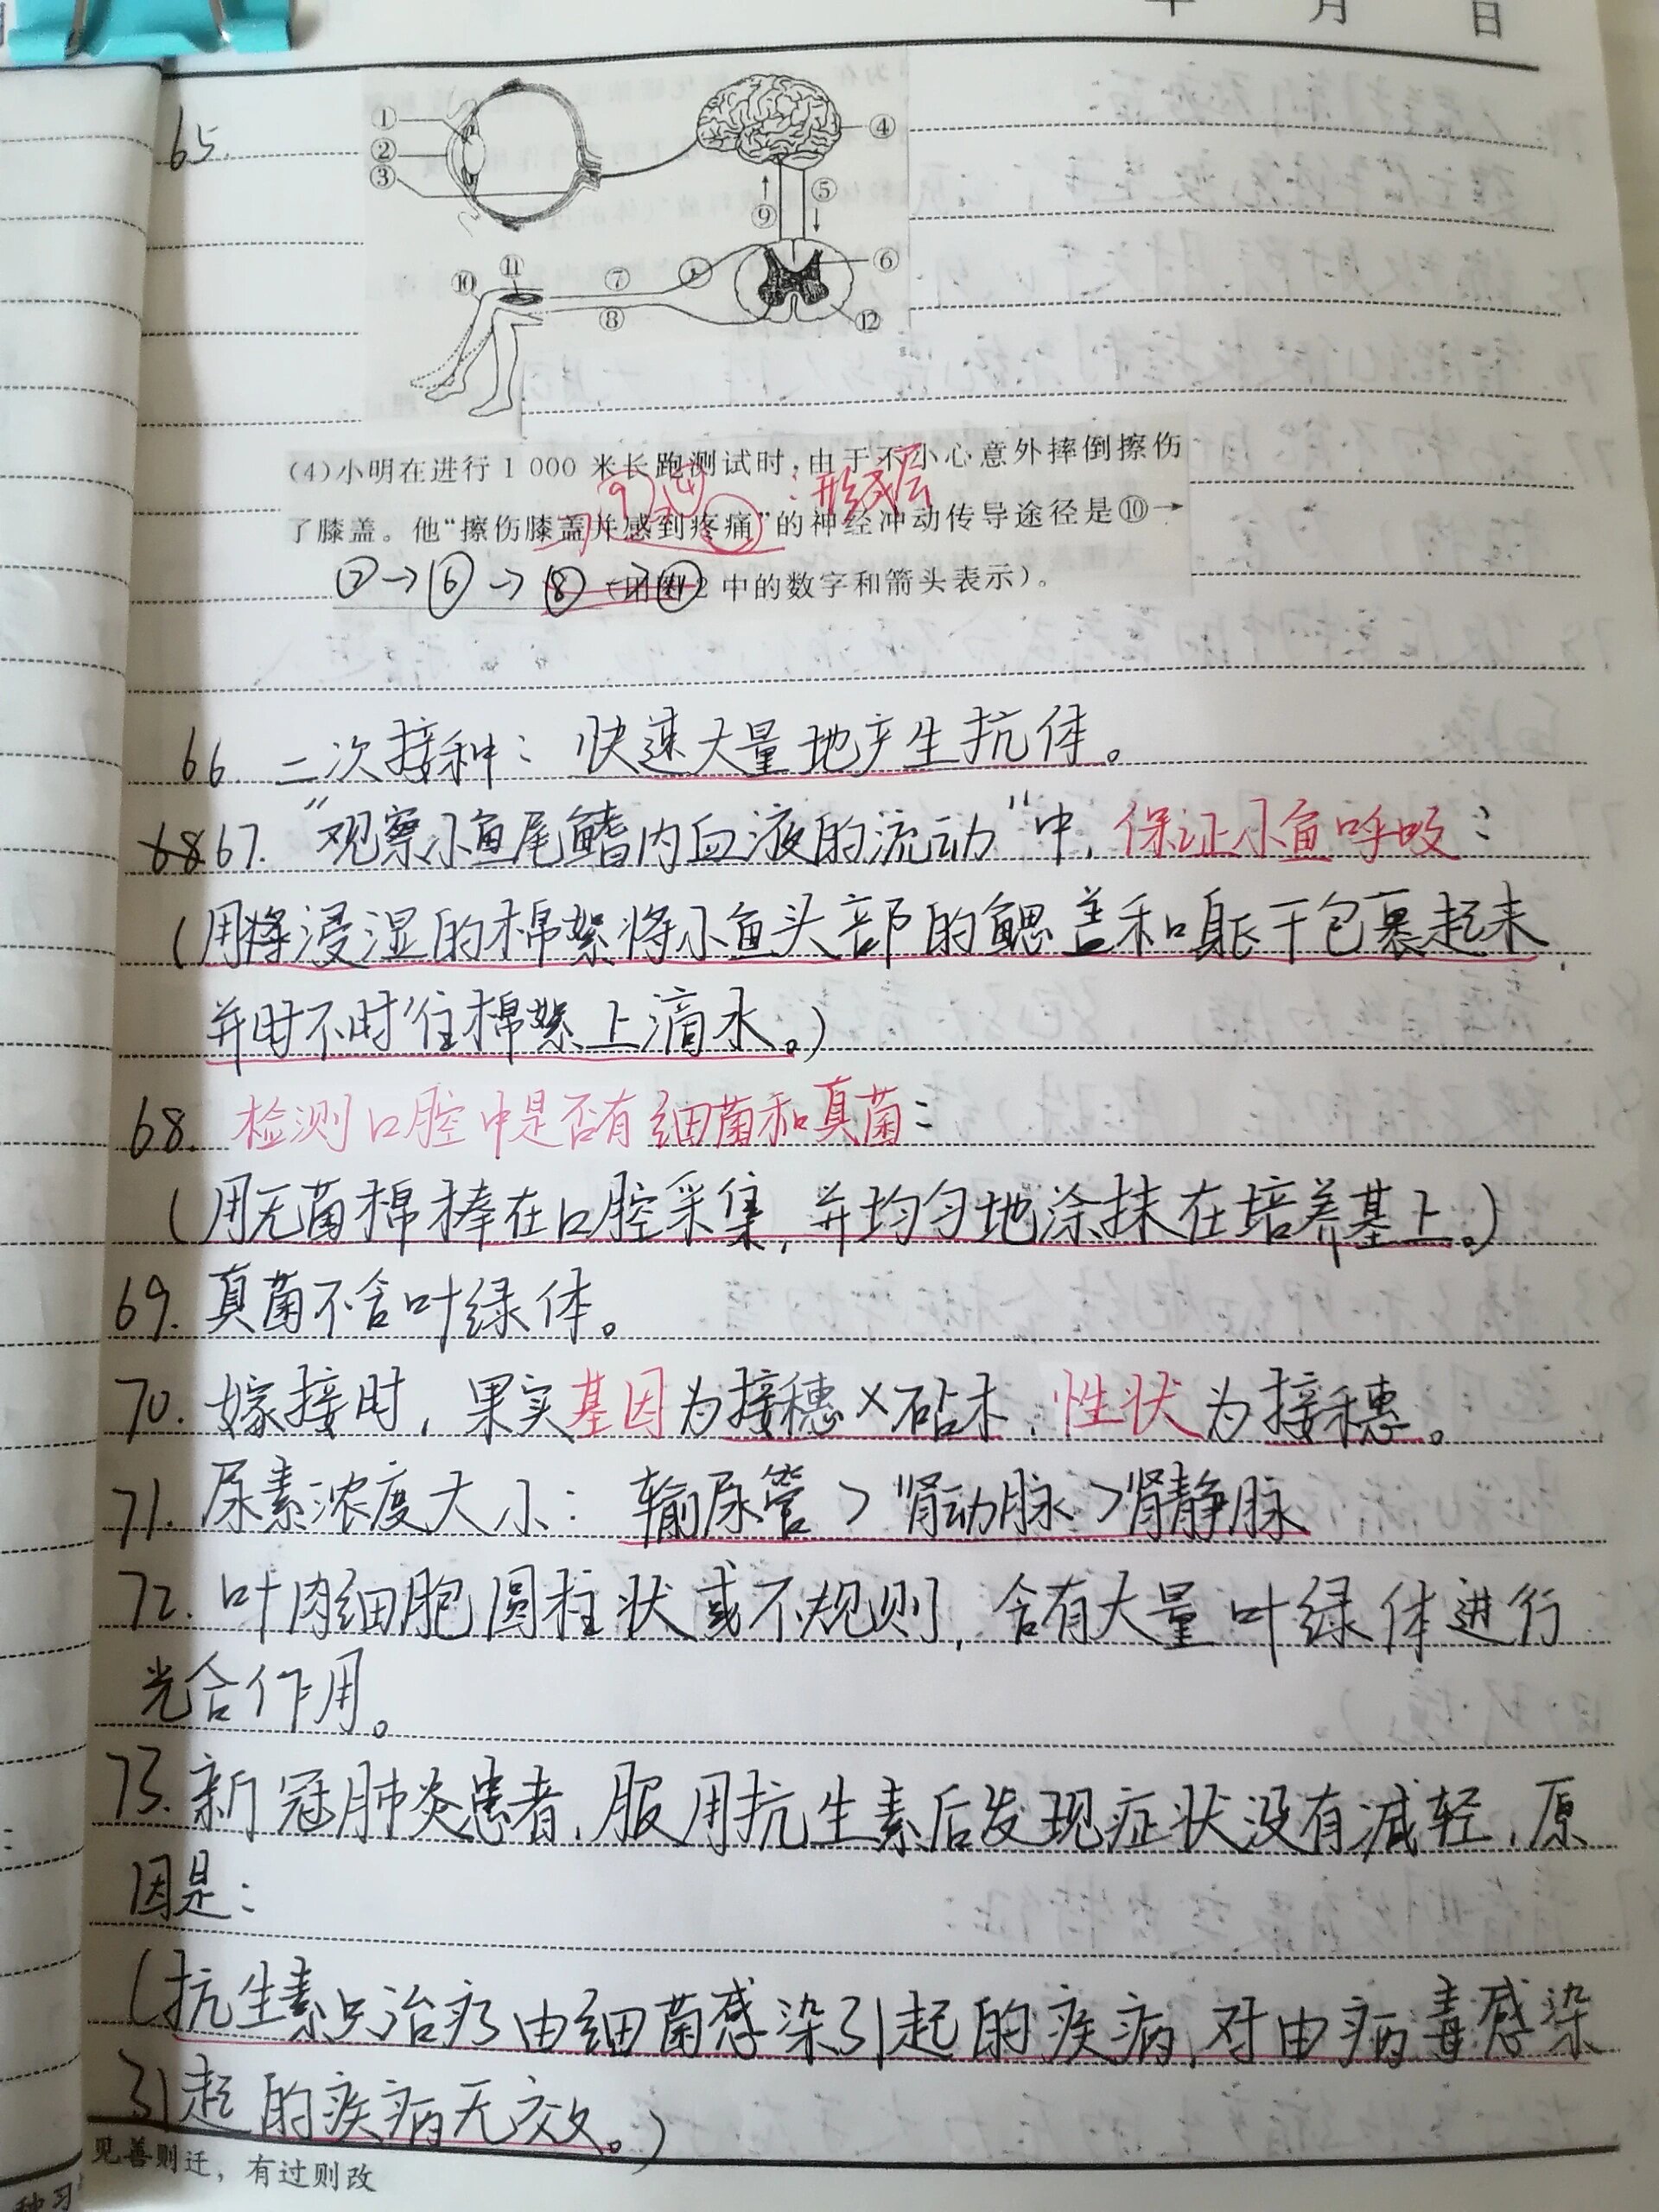 年 月 日
65.
① ② ③ ④ ⑤ ⑥ ⑦ ⑧ ⑨ ⑩ ⑪ ⑫
(4)小明在进行1 000米长跑测试时,由于不小心意外摔倒擦伤
⑨ ④ :形成层
了膝盖。他“擦伤膝盖并感到疼痛”的神经冲动传导途径是⑩→
⑦→⑥→⑧→⑪(用图2中的数字和箭头表示)。
66. 二次接种:快速大量地产生抗体。
68 67. “观察小鱼尾鳍内血液的流动”中,保证小鱼呼吸:
(用浸湿的棉絮将小鱼头部的鳃盖和躯干包裹起来,
并时不时往棉絮上滴水。)
68. 检测口腔中是否有细菌和真菌:
(用无菌棉棒在口腔采集,并均匀地涂抹在培养基上。)
69. 真菌不含叶绿体。
70. 嫁接时,果实基因为接穗×砧木,性状为接穗。
71. 尿素浓度大小:输尿管>肾动脉>肾静脉
72. 叶肉细胞圆柱状或不规则,含有大量叶绿体进行
光合作用。
73. 新冠肺炎患者,服用抗生素后发现症状没有减轻,原
因是:
(抗生素只治疗由细菌感染引起的疾病,对由病毒感染
引起的疾病无效。)
见善则迁,有过则改